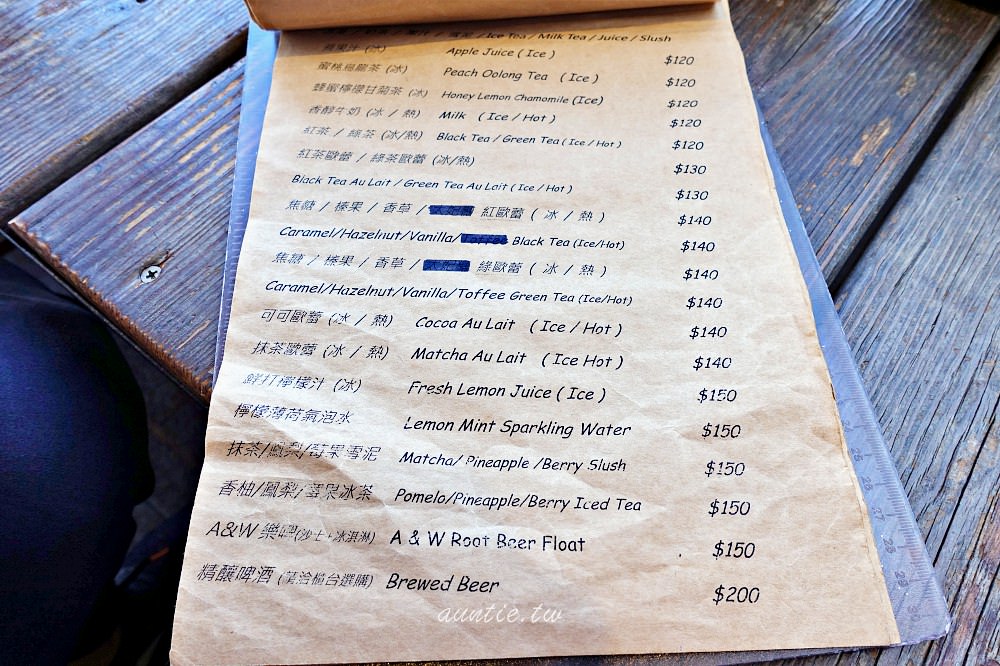 Ice Tea / Milk Tea / Juice / Slush
蘋果汁 (冰) Apple Juice ( Ice ) $120
蜜桃烏龍茶 (冰) Peach Oolong Tea ( Ice ) $120
蜂蜜檸檬甘菊茶 (冰) Honey Lemon Chamomile (Ice) $120
香醇牛奶 (冰 / 熱) Milk ( Ice / Hot ) $120
紅茶 / 綠茶 (冰/熱) Black Tea / Green Tea ( Ice / Hot ) $120
紅茶歐蕾 / 綠茶歐蕾 (冰/熱) $130
Black Tea Au Lait / Green Tea Au Lait ( Ice / Hot ) $130
焦糖 / 榛果 / 香草 / 紅歐蕾 ( 冰 / 熱 ) $140
Caramel/Hazelnut/Vanilla/ Black Tea (Ice/Hot) $140
焦糖 / 榛果 / 香草 / 綠歐蕾 ( 冰 / 熱 ) $140
Caramel/Hazelnut/Vanilla/Toffee Green Tea (Ice/Hot) $140
可可歐蕾 (冰 / 熱) Cocoa Au Lait ( Ice / Hot ) $140
抹茶歐蕾 (冰 / 熱) Matcha Au Lait ( Ice Hot ) $140
鮮打檸檬汁 (冰) Fresh Lemon Juice ( Ice ) $150
檸檬薄荷氣泡水 Lemon Mint Sparkling Water $150
抹茶/鳳梨/莓果雪泥 Matcha/ Pineapple /Berry Slush $150
香柚/鳳梨/莓果冰茶 Pomelo/Pineapple/Berry Iced Tea $150
A&W 樂啤(沙士+冰淇淋) A & W Root Beer Float $150
精釀啤酒 (請洽櫃台選購) Brewed Beer $200
auntie.tw